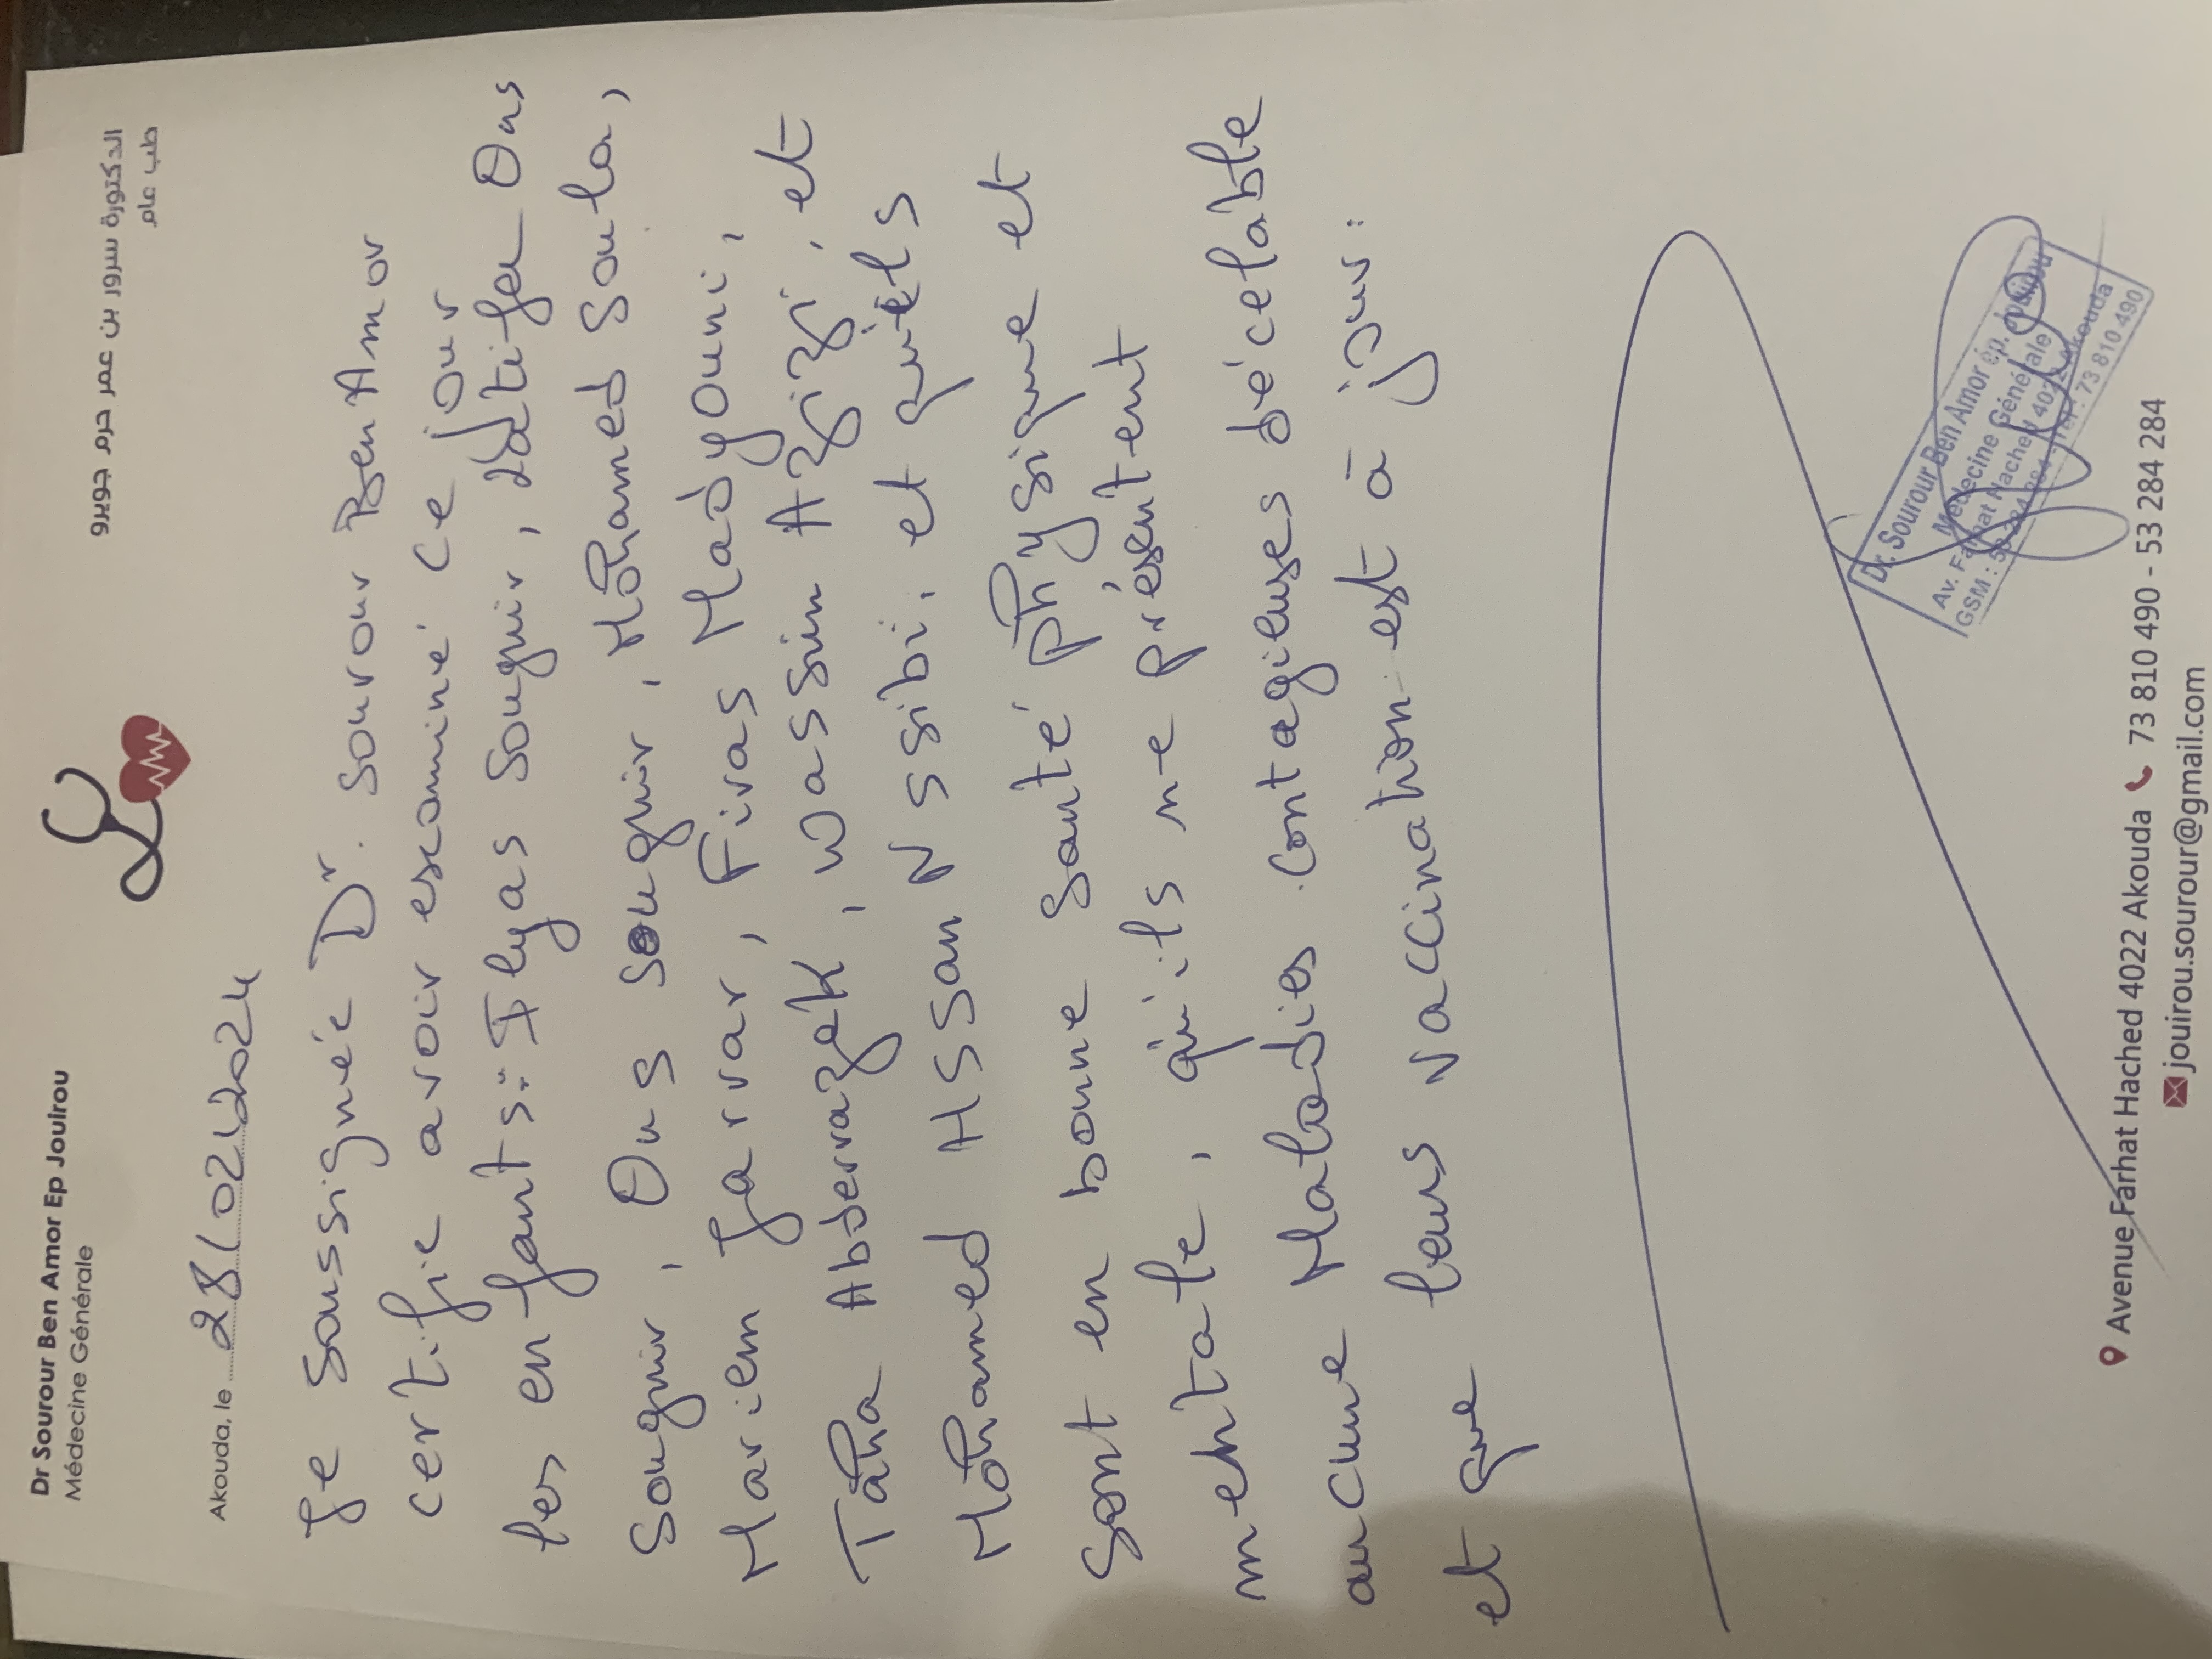 Dr Sourour Ben Amor Ep Jouirou
Médecine Générale
الدكتورة سرور بن عمر حرم جويرو
طب عام
Akouda, le 28/02/2024
Je soussignée Dr. Sourour Ben Amor
certifie avoir examiné ce jour
les enfants: Ilyas Souguir, Latifa Ons
Souguir, Ons Souguir, Mohamed Soula,
Mariem Jarvar, Firas Madyouni,
Taha Abderrazak, Wassim Azizi, et
Mohamed Hssan Nssibi. et qu'ils
sont en bonne santé physique et
mentale, qu'ils ne présentent
aucune Maladies contagieuses décelable
et que leurs vaccination est à jour.
Dr. Sourour Ben Amor ép. Jouirou
Médecine Générale
Av. Farhat Hached 4022 Akouda
GSM : 53 284 284 - Tél : 73 810 490
Avenue Farhat Hached 4022 Akouda 73 810 490 - 53 284 284
jouirou.sourour@gmail.com